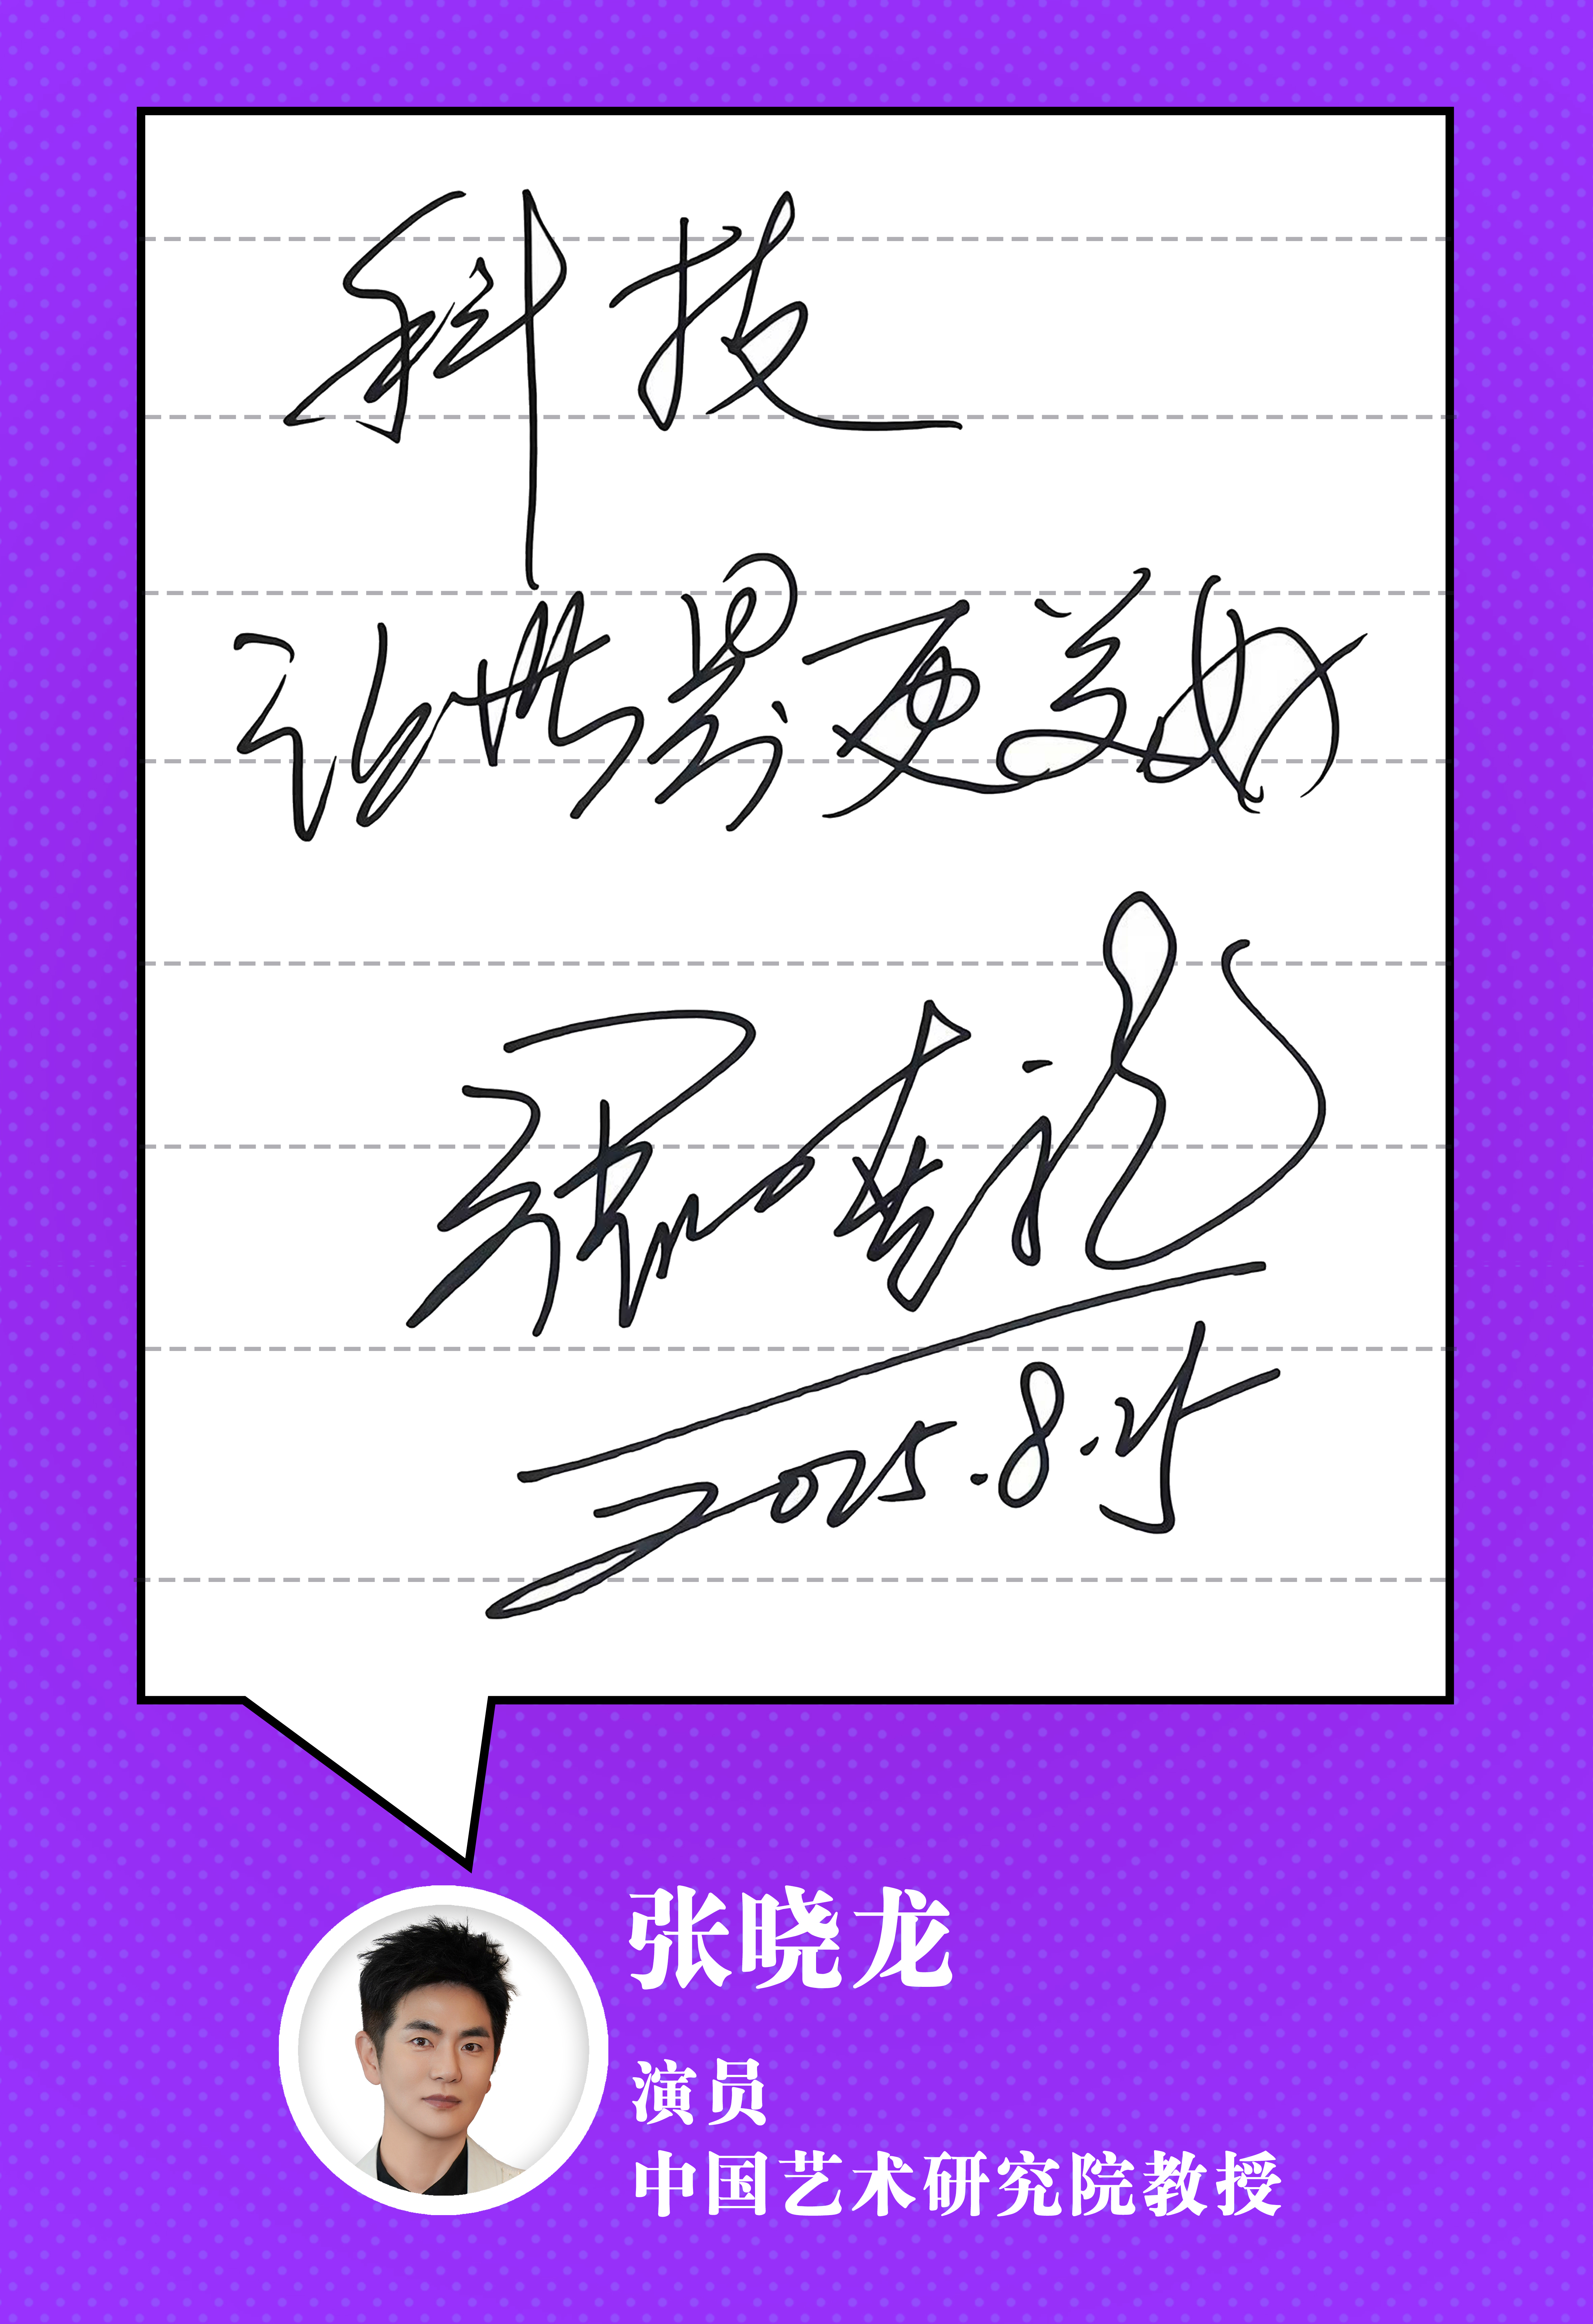 科技
让世界更美好
张晓龙
2025.8.25
张晓龙
演员
中国艺术研究院教授